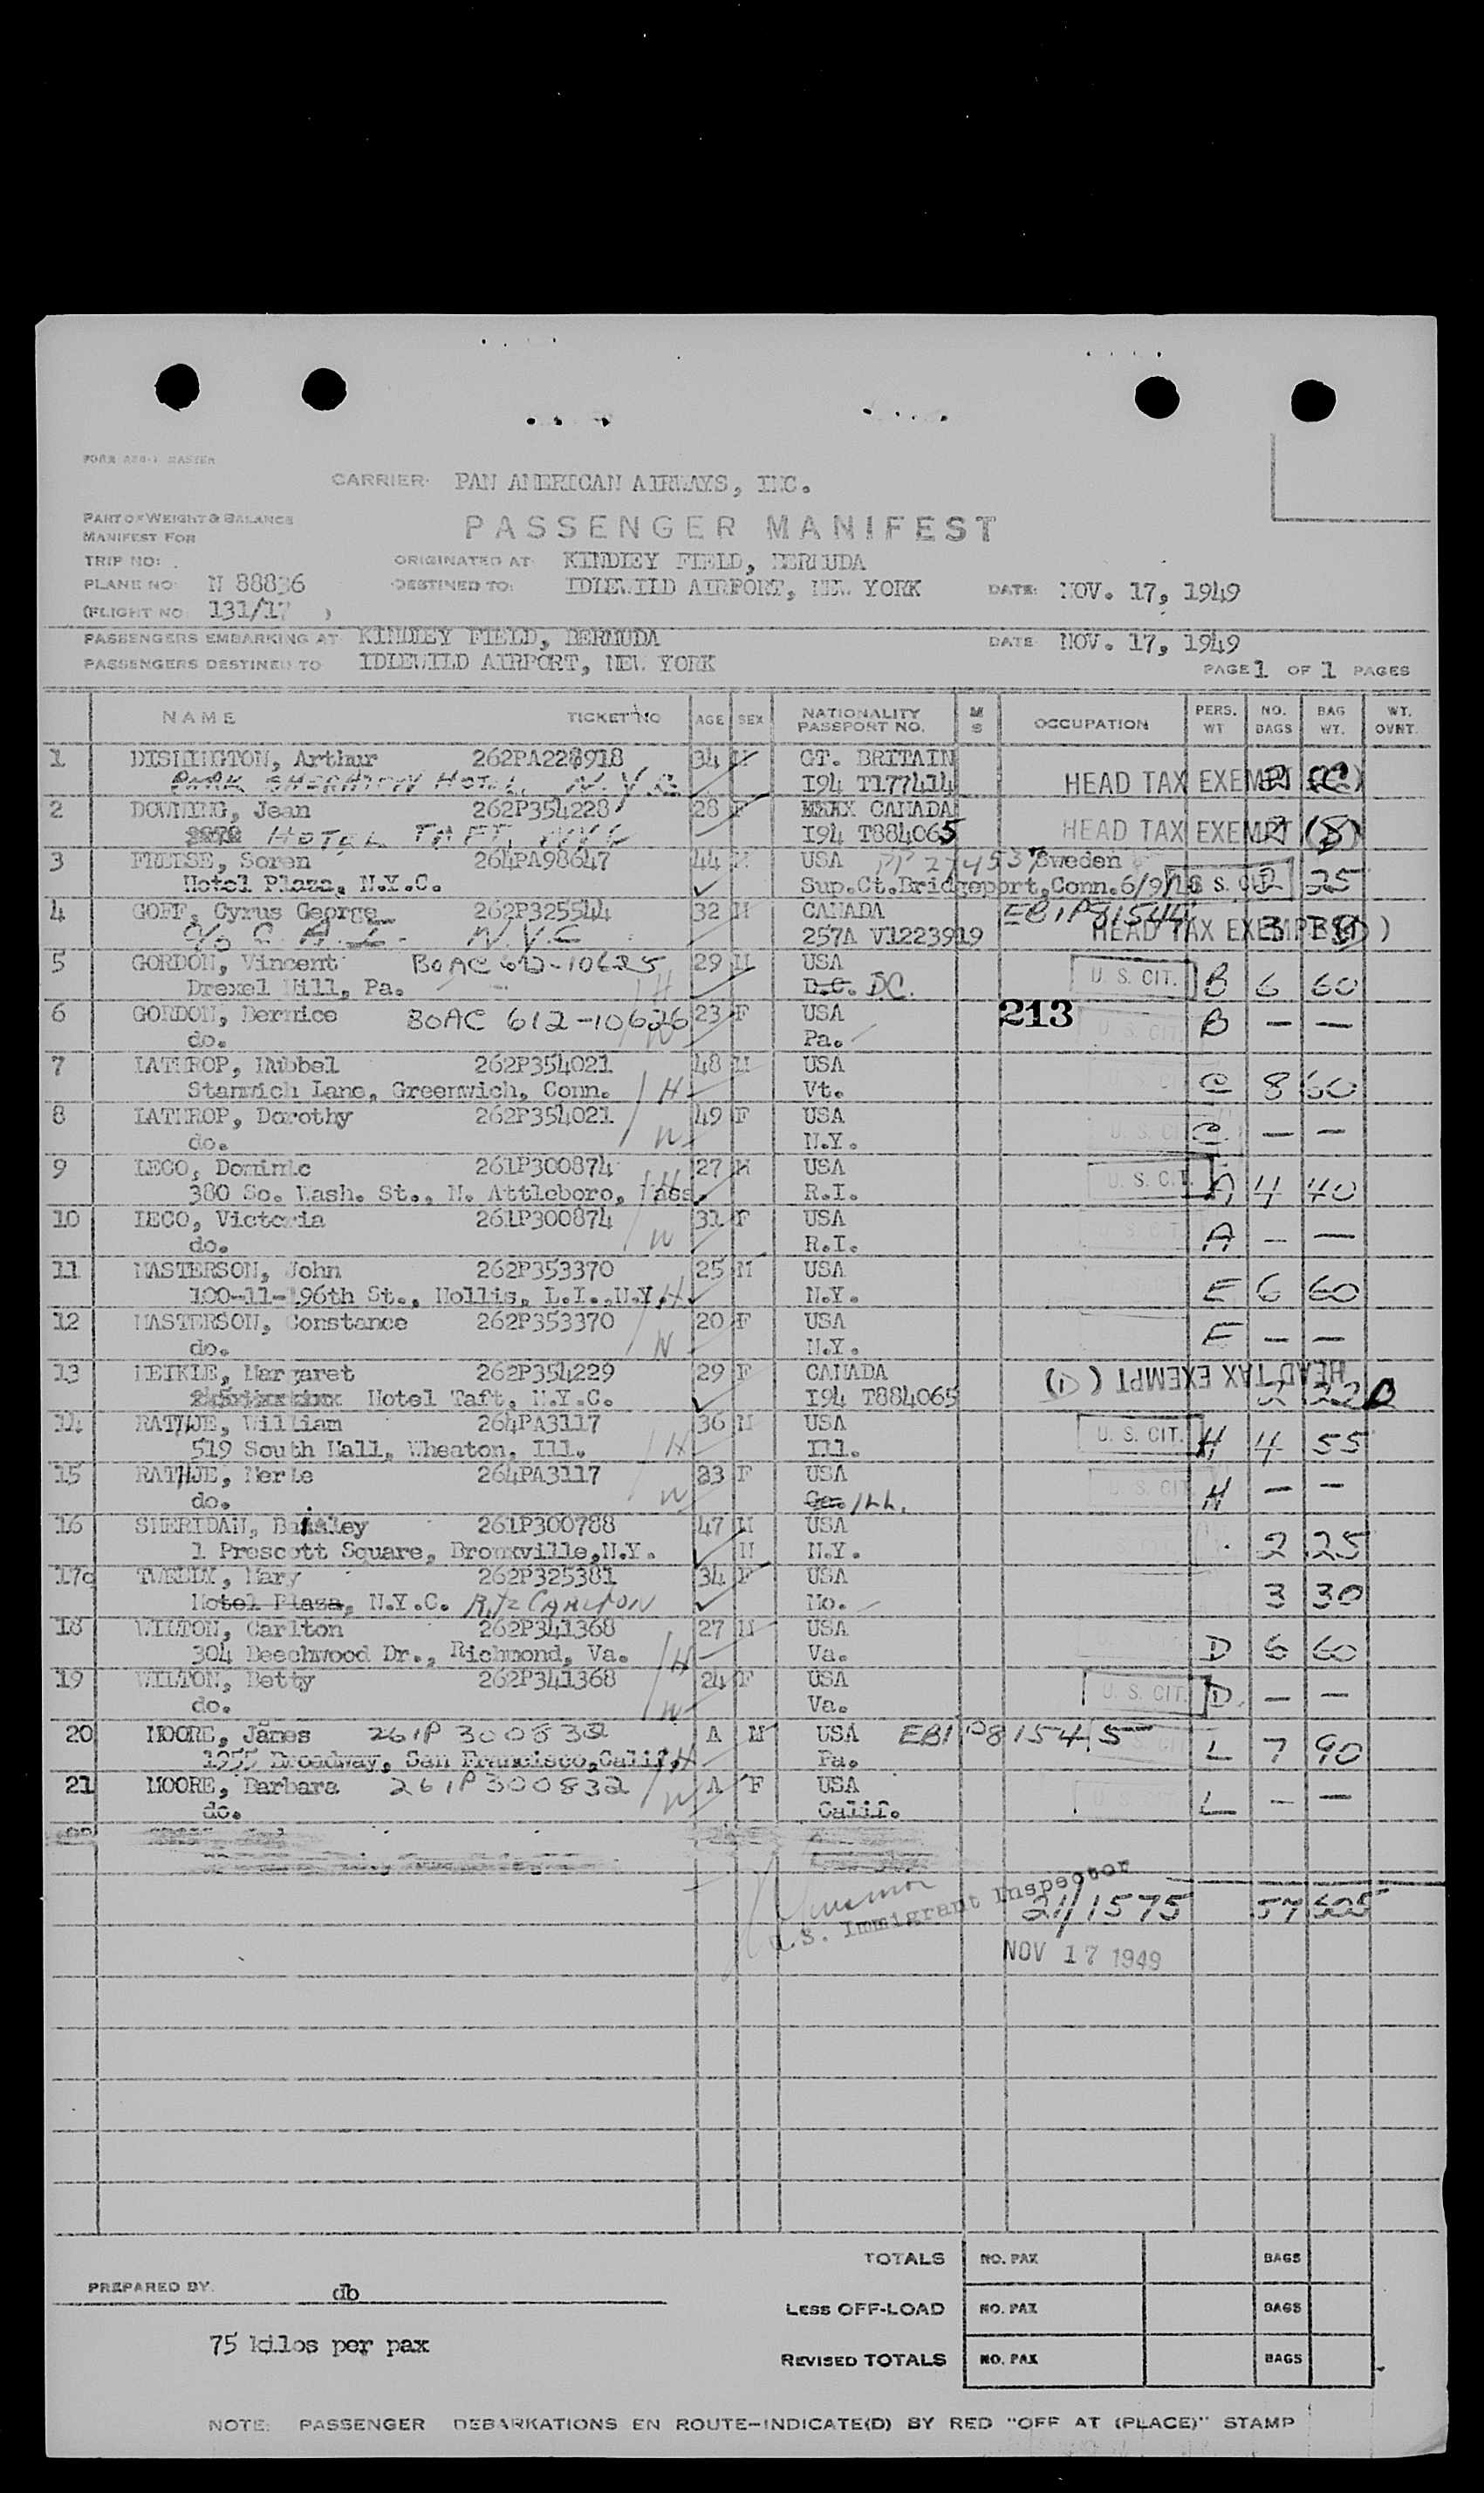 FORM MASTER
CARRIER: PAN AMERICAN AIRWAYS, INC.
PART OF WEIGHT & BALANCE
MANIFEST FOR
PASSENGER MANIFEST
TRIP NO: ORIGINATED AT: KINDLEY FIELD, BERMUDA
PLANE NO: N 88836 DESTINED TO: IDLEWILD AIRPORT, NEW YORK DATE: NOV. 17, 1949
(FLIGHT NO 131/17 )
PASSENGERS EMBARKING AT KINDLEY FIELD, BERMUDA DATE NOV. 17, 1949
PASSENGERS DESTINED TO IDLEWILD AIRPORT, NEW YORK PAGE 1 OF 1 PAGES
NAME TICKET NO AGE SEX NATIONALITY PASSPORT NO. M S OCCUPATION PERS. WT NO. BAGS BAG WT. WT. OVNT.
1 DISHINGTON, Arthur 262PA228918 34 M GT. BRITAIN
PARK SHERATON HOTEL N.Y.C. I94 T177414 HEAD TAX EXEMPT (C)
2 DOWNING, Jean 262P354228 28 F CANADA
HOTEL TAFT NYC I94 T884065 HEAD TAX EXEMPT
3 FREESE, Soren 264PA98647 44 M USA PP 274537 Sweden
Hotel Plaza, N.Y.C. Sup.Ct.Bridgeport,Conn. U. S. CIT. 2 25
4 GOFF, Cyrus George 262P325544 32 M CANADA EB1P81544
c/o N.Y.C 257A V1223919 HEAD TAX EXEMPT 3
5 GORDON, Vincent BOAC 612-10625 29 M USA
Drexel Hill, Pa. H D.C. DC. U. S. CIT. B 6 60
6 GORDON, Bernice BOAC 612-10626 23 F USA 213 U. S. CIT. B — —
do. W Pa.
7 LATHROP, Hubbel 262P354021 48 M USA
Stanwich Lane, Greenwich, Conn. H Vt. C 8 60
8 LATHROP, Dorothy 262P354021 49 F USA
do. W N.Y. U. S. CIT. C — —
9 LECO, Dominic 261P300874 27 M USA
380 So. Wash. St., N. Attleboro, Mass. H R.I. U. S. CIT. A 4 40
10 LECO, Victoria 261P300874 31 F USA
do. W R.I. U. S. CIT. A — —
11 MASTERSON, John 262P353370 25 M USA
100-11-196th St., Hollis, L.I.,N.Y. H N.Y. E 6 60
12 MASTERSON, Constance 262P353370 20 F USA
do. W N.Y. E — —
13 MEIKLE, Margaret 262P354229 29 F CANADA HEAD TAX EXEMPT (D)
Hotel Taft, N.Y.C. I94 T884065 2 22
14 RATHJE, William 264PA3117 36 M USA
519 South Hall, Wheaton, Ill. H Ill. U. S. CIT. H 4 55
15 RATHJE, Merle 264PA3117 23 F USA
do. W Ill. U. S. CIT. H — —
16 SHERIDAN, 261P300788 47 M USA
1 Prescott Square, Bronxville,N.Y. M N.Y. 2 25
17 Mary 262P325381 34 F USA
Hotel Plaza, N.Y.C. RITZ CARLTON Mo. 3 30
18 WILTON, Carlton 262P341368 27 M USA
304 Beechwood Dr., Richmond, Va. H Va. D 6 60
19 WILTON, Betty 262P341368 24 F USA
do. W Va. U. S. CIT. D — —
20 MOORE, James 261P300832 A M USA EB1P81545
1955 Broadway, San Francisco,Calif. H Pa. L 7 90
21 MOORE, Barbara 261P300832 A F USA
do. W Calif. U. S. CIT. L — —
U.S. Immigrant Inspector
21/1575 57 605
NOV 17 1949
TOTALS NO. PAX BAGS
PREPARED BY. db
LESS OFF-LOAD NO. PAX BAGS
75 kilos per pax
REVISED TOTALS NO. PAX BAGS
NOTE: PASSENGER DEBARKATIONS EN ROUTE-INDICATE(D) BY RED "OFF AT (PLACE)" STAMP